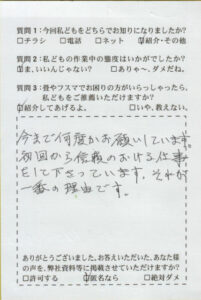 質問1:今回私どもをどちらでお知りになりましたか?
□チラシ □電話 □ネット ☑紹介・その他
質問2:私どもの作業中の態度はいかがでしたか?
☑ま、いいんじゃない? □ありゃ〜、ダメだね。
質問3:畳やフスマでお困りの方がいらっしゃったら、
私どもをご推薦いただけますか?
☑紹介してあげるよ。 □いや、教えない。
今まで何度かお願いしています。
初回から信頼のおける仕事
をして下さっています。それが
一番の理由です。
ありがとうございました。お答えいただいた、あなた様
の声を、弊社資料等に掲載させていただけますか?
□許可する ☑匿名なら □絶対ダメ